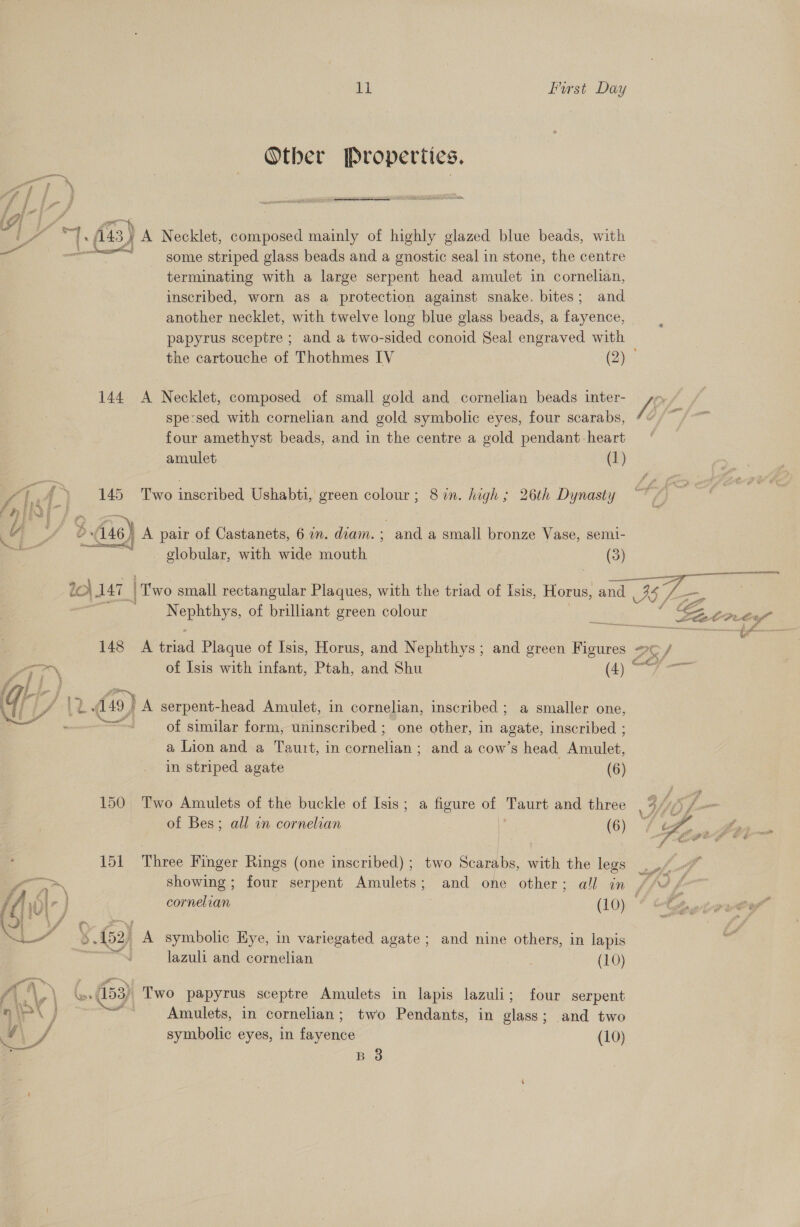 11 First Day
Other Properties.
143 A Necklet, composed mainly of highly glazed blue beads, with
some striped glass beads and a gnostic seal in stone, the centre
terminating with a large serpent head amulet in cornelian,
inscribed, worn as a protection against snake. bites; and
another necklet, with twelve long blue glass beads, a fayence,
papyrus sceptre; and a two-sided conoid Seal engraved with
the cartouche of Thothmes IV (2)
144 A Necklet, composed of small gold and cornelian beads inter-
spersed with cornelian and gold symbolic eyes, four scarabs,
four amethyst beads, and in the centre a gold pendant heart
amulet (1)
145 Two inscribed Ushabti, green colour; 8 in. high; 26th Dynasty
146 A pair of Castanets, 6 in. diam.; and a small bronze Vase, semi-
globular, with wide mouth (3)
147 Two small rectangular Plaques, with the triad of Isis, Horus, and
Nephthys, of brilliant green colour
148 A triad Plaque of Isis, Horus, and Nephthys; and green Figures
of Isis with infant, Ptah, and Shu (4)
12 149 A serpent-head Amulet, in cornelian, inscribed; a smaller one,
of similar form, uninscribed; one other, in agate, inscribed;
a Lion and a Taurt, in cornelian; and a cow's head Amulet,
in striped agate (6)
150 Two Amulets of the buckle of Isis; a figure of Taurt and three
of Bes; all in cornelian (6)
151 Three Finger Rings (one inscribed); two Scarabs, with the legs
showing; four serpent Amulets; and one other; all in
cornelian (10)
152 A symbolic Eye, in variegated agate; and nine others, in lapis
lazuli and cornelian (10)
153 Two papyrus sceptre Amulets in lapis lazuli; four serpent
Amulets, in cornelian; two Pendants, in glass; and two
symbolic eyes, in fayence (10)
B 3